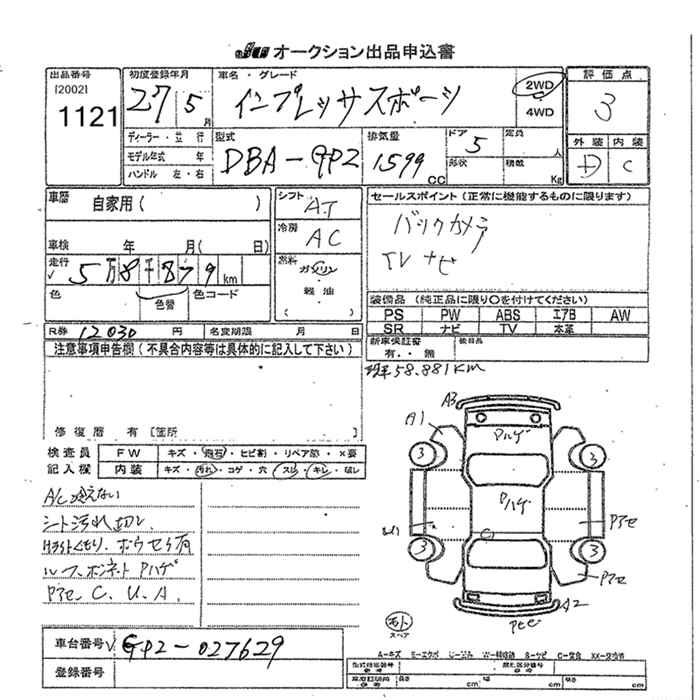 JU オークション出品申込書
出品番号
[2002]
1121
初度登録年月
27 5月
車名・グレード
インプレッサスポーツ
2WD
4WD
評価点
3
外装 内装
D C
ディーラー・並行
モデル年式 年
ハンドル 左・右
型式
DBA-GP2
排気量
1599 CC
ドア
5
形状
定員
人
積載
Kg
車歴
自家用( )
車検 年 月( 日)
走行
5万8千879km
色
色替
色コード
シフト
AT
冷房
AC
燃料
ガソリン
軽油
( )
セールスポイント(正常に機能するものに限ります)
バックカメラ
TV ナビ
装備品(純正品に限り○を付けてください)
PS PW ABS エアB AW
SR ナビ TV 本革
新車保証書
有・・無
後日品
R券 12030 円
名変期限 月 日
注意事項申告欄(不具合内容等は具体的に記入して下さい)
現車58.881KM
修復歴 有 [箇所
検査員 FW キズ・飛石・ヒビ割・リペア跡・×要
記入欄 内装 キズ・汚れ・コゲ・穴・スレ・キレ・破レ
A/C冷えない
シート汚れ切レ
ルーフ、ボンネットPハゲ
Pアセ.C.U.A.
A3
A1
Pハゲ
3
3
Pハゲ
Pアセ
3
3
Pアセ
A2
スペア
車台番号 GP2-027629
登録番号
cm cm cm